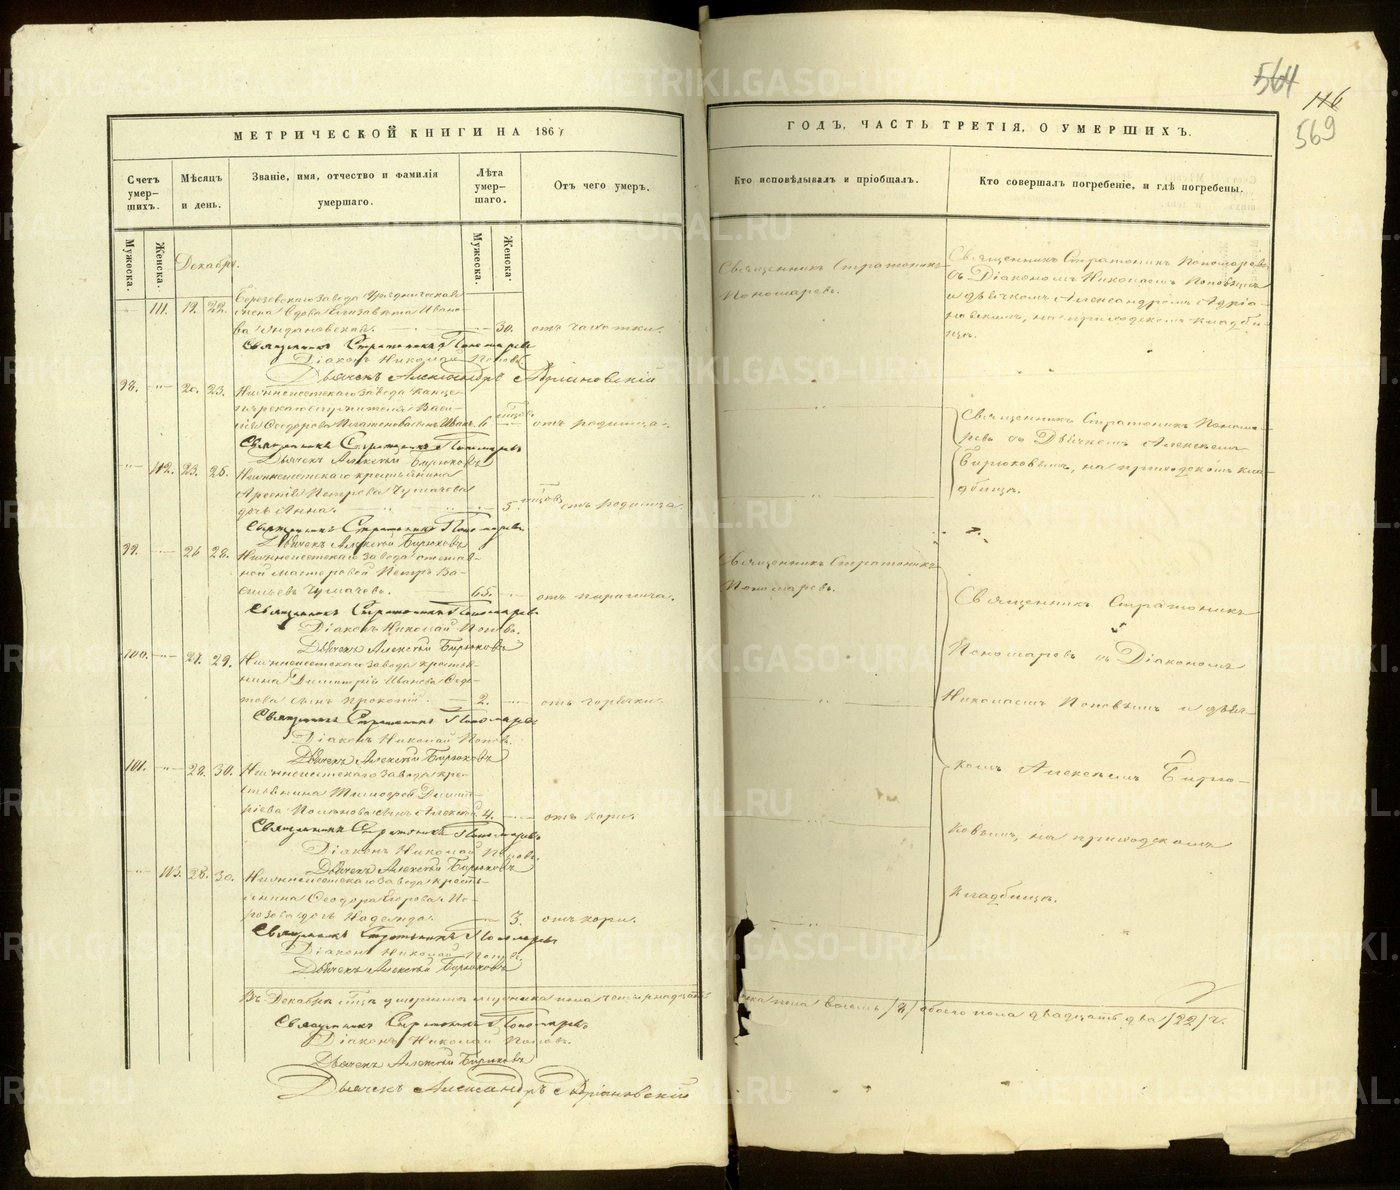 564
116
569
МЕТРИЧЕСКОЙ КНИГИ НА 1867
ГОДЪ, ЧАСТЬ ТРЕТІЯ, О УМЕРШИХЪ.
Счетъ умер-шихъ.
Мѣсяцъ и день.
Званіе, имя, отчество и фамилія умершаго.
Лѣта умер-шаго.
Отъ чего умеръ.
Кто исповѣдывалъ и пріобщалъ.
Кто совершалъ погребеніе, и гдѣ погребены.
Мужеска.
Женска.
Мужеска.
Женска.
Декабрь.
111. 19. 22.
Березовскаго завода Урядническая
жена вдова Елизавета Ивано-
ва 30. отъ чахотки.
Священникъ Стратоникъ Пономаревъ
Діаконъ Николай Поповъ
Дьячекъ Александръ Адріановскій
Священникъ Стратоникъ
Пономаревъ.
Священникъ Стратоникъ Пономаревъ
съ Діакономъ Николаемъ Поповымъ
и дьячкомъ Александромъ Адріа-
новскимъ, на приходскомъ кладби-
щѣ.
98. 20. 23.
Нижнеисетскаго завода канце-
лярскаго служителя Васи-
лія Ѳеодорова сынъ Иванъ 6 отъ родимца.
Священникъ Стратоникъ Пономаревъ
Дьячекъ Алексѣй Бирюковъ
112. 23. 25.
Нижнеисетскаго крестьянина
Арсенія Петрова Чумачева
дочь Анна. 5 отъ родимца.
Священникъ Стратоникъ Пономаревъ
Дьячекъ Алексѣй Бирюковъ
Священникъ Стратоникъ Понома-
ревъ съ Дьячкомъ Алексѣемъ
Бирюковымъ, на приходскомъ кла-
дбищѣ.
99. 26. 28.
Нижнеисетскаго завода отстав-
ной мастеровой Петръ Ва-
сильевъ Чумачевъ. 65. отъ паралича.
Священникъ Стратоникъ Пономаревъ
Діаконъ Николай Поповъ.
Дьячекъ Алексѣй Бирюковъ
Священникъ Стратоникъ
Пономаревъ.
100. 27. 29.
Нижнеисетскаго завода крестья-
нина Димитрія Иванова
сынъ Прокопій. 2. отъ горячки.
Священникъ Стратоникъ Пономаревъ
Діаконъ Николай Поповъ.
Дьячекъ Алексѣй Бирюковъ
101. 28. 30.
Нижнеисетскаго завода кре-
стьянина Тимоѳея Димит-
ріева сынъ Алексѣй 4. отъ кори.
Священникъ Стратоникъ Пономаревъ
Діаконъ Николай Поповъ.
Дьячекъ Алексѣй Бирюковъ
113. 28. 30.
Нижнеисетскаго завода кресть-
янина Ѳеодора Егорова Мо-
розова дочь Надежда. 3. отъ кори.
Священникъ Стратоникъ Пономаревъ
Діаконъ Николай Поповъ.
Дьячекъ Алексѣй Бирюковъ
Священникъ Стратоникъ
Пономаревъ съ Діакономъ
Николаемъ Поповымъ и дьяч-
комъ Алексѣемъ Бирю-
ковымъ, на приходскомъ
кладбищѣ.
Въ Декабрѣ м-цѣ умершихъ мужеска пола четырнадцать
пола восемь /8/ обоего пола двадцать два /22/ ч.
Священникъ Стратоникъ Пономаревъ
Діаконъ Николай Поповъ.
Дьячекъ Алексѣй Бирюковъ
Дьячекъ Александръ Адріановскій
METRIKI.GASO-URAL.RU